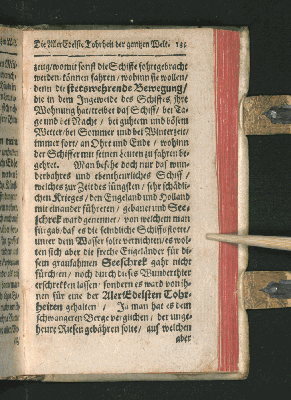 Die AllerEdelste Tohrheit der gantzen Welt. 135
zeug / womit sonst die Schiffe fortgebracht
werden können fahren / wohin sie wollen /
denn die stetswehrende Bewegung /
die in dem Ingeweide des Schiffes / ihre
Wohnung hat treibet das Schiff / bei Ta-
ge und bei Nacht / bei guhtem und bösem
Wetter / bei Sommer und bei Winterzeit /
immer fort / an Ohrt und Ende / wohin
der Schiffer mit seinen Leuten zu fahren be-
gehret. Man besehe doch nur das wun-
derbahres und ebentheurliches Schiff /
welches zur Zeit des jüngsten / sehr schädli-
chen Krieges / den Engeland und Holland
mit einander führeten / gebauet und See-
schrek ward genennet / von welchem man
für gab / daß es die feindliche Schiffsflotte /
unter dem Wasser solte vernichten / es wol-
ten sich aber die freche Engeländer für di-
sem grausahmen Seeschrek gahr nicht
fürchten / noch durch diese Wunderthier
erschrekken lassen / sondern es ward von ih-
nen für eine der AllerEdelsten Tohr-
heiten gehalten / Ja man hat es dem
schwangeren Berge verglichen / der unge-
heure Riesen gebähren solte / auf welchen
aber